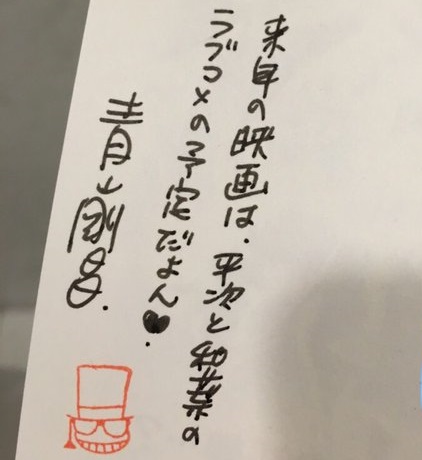 来年の映画は、平次と和葉の
ラブコメの予定だよん♥.
青山剛昌.